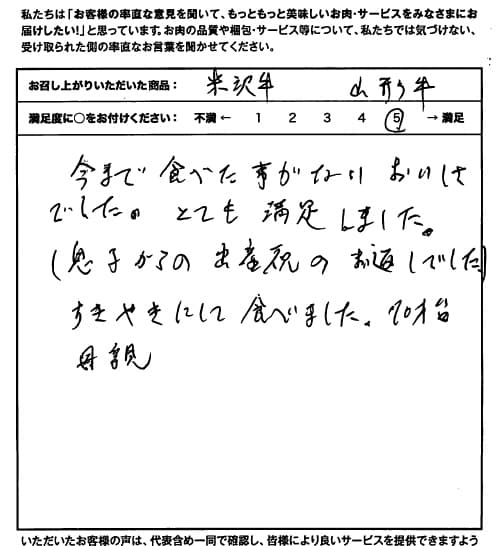 私たちは「お客様の率直な意見を聞いて、もっともっと美味しいお肉・サービスをみなさまにお
届けしたい!」と思っています。お肉の品質や梱包・サービス等について、私たちでは気づけない、
受け取られた側の率直なお言葉を聞かせてください。
お召し上がりいただいた商品： 米沢牛 山形牛
満足度に○をお付けください： 不満 ← 1 2 3 4 5 → 満足
今まで食べた事がない おいしさ
でした。とても 満足 しました。
(息子からの 出産祝の お返しでした)
すきやきにして 食べました。70才台
母親
いただいたお客様の声は、代表含め一同で確認し、皆様により良いサービスを提供できますよう